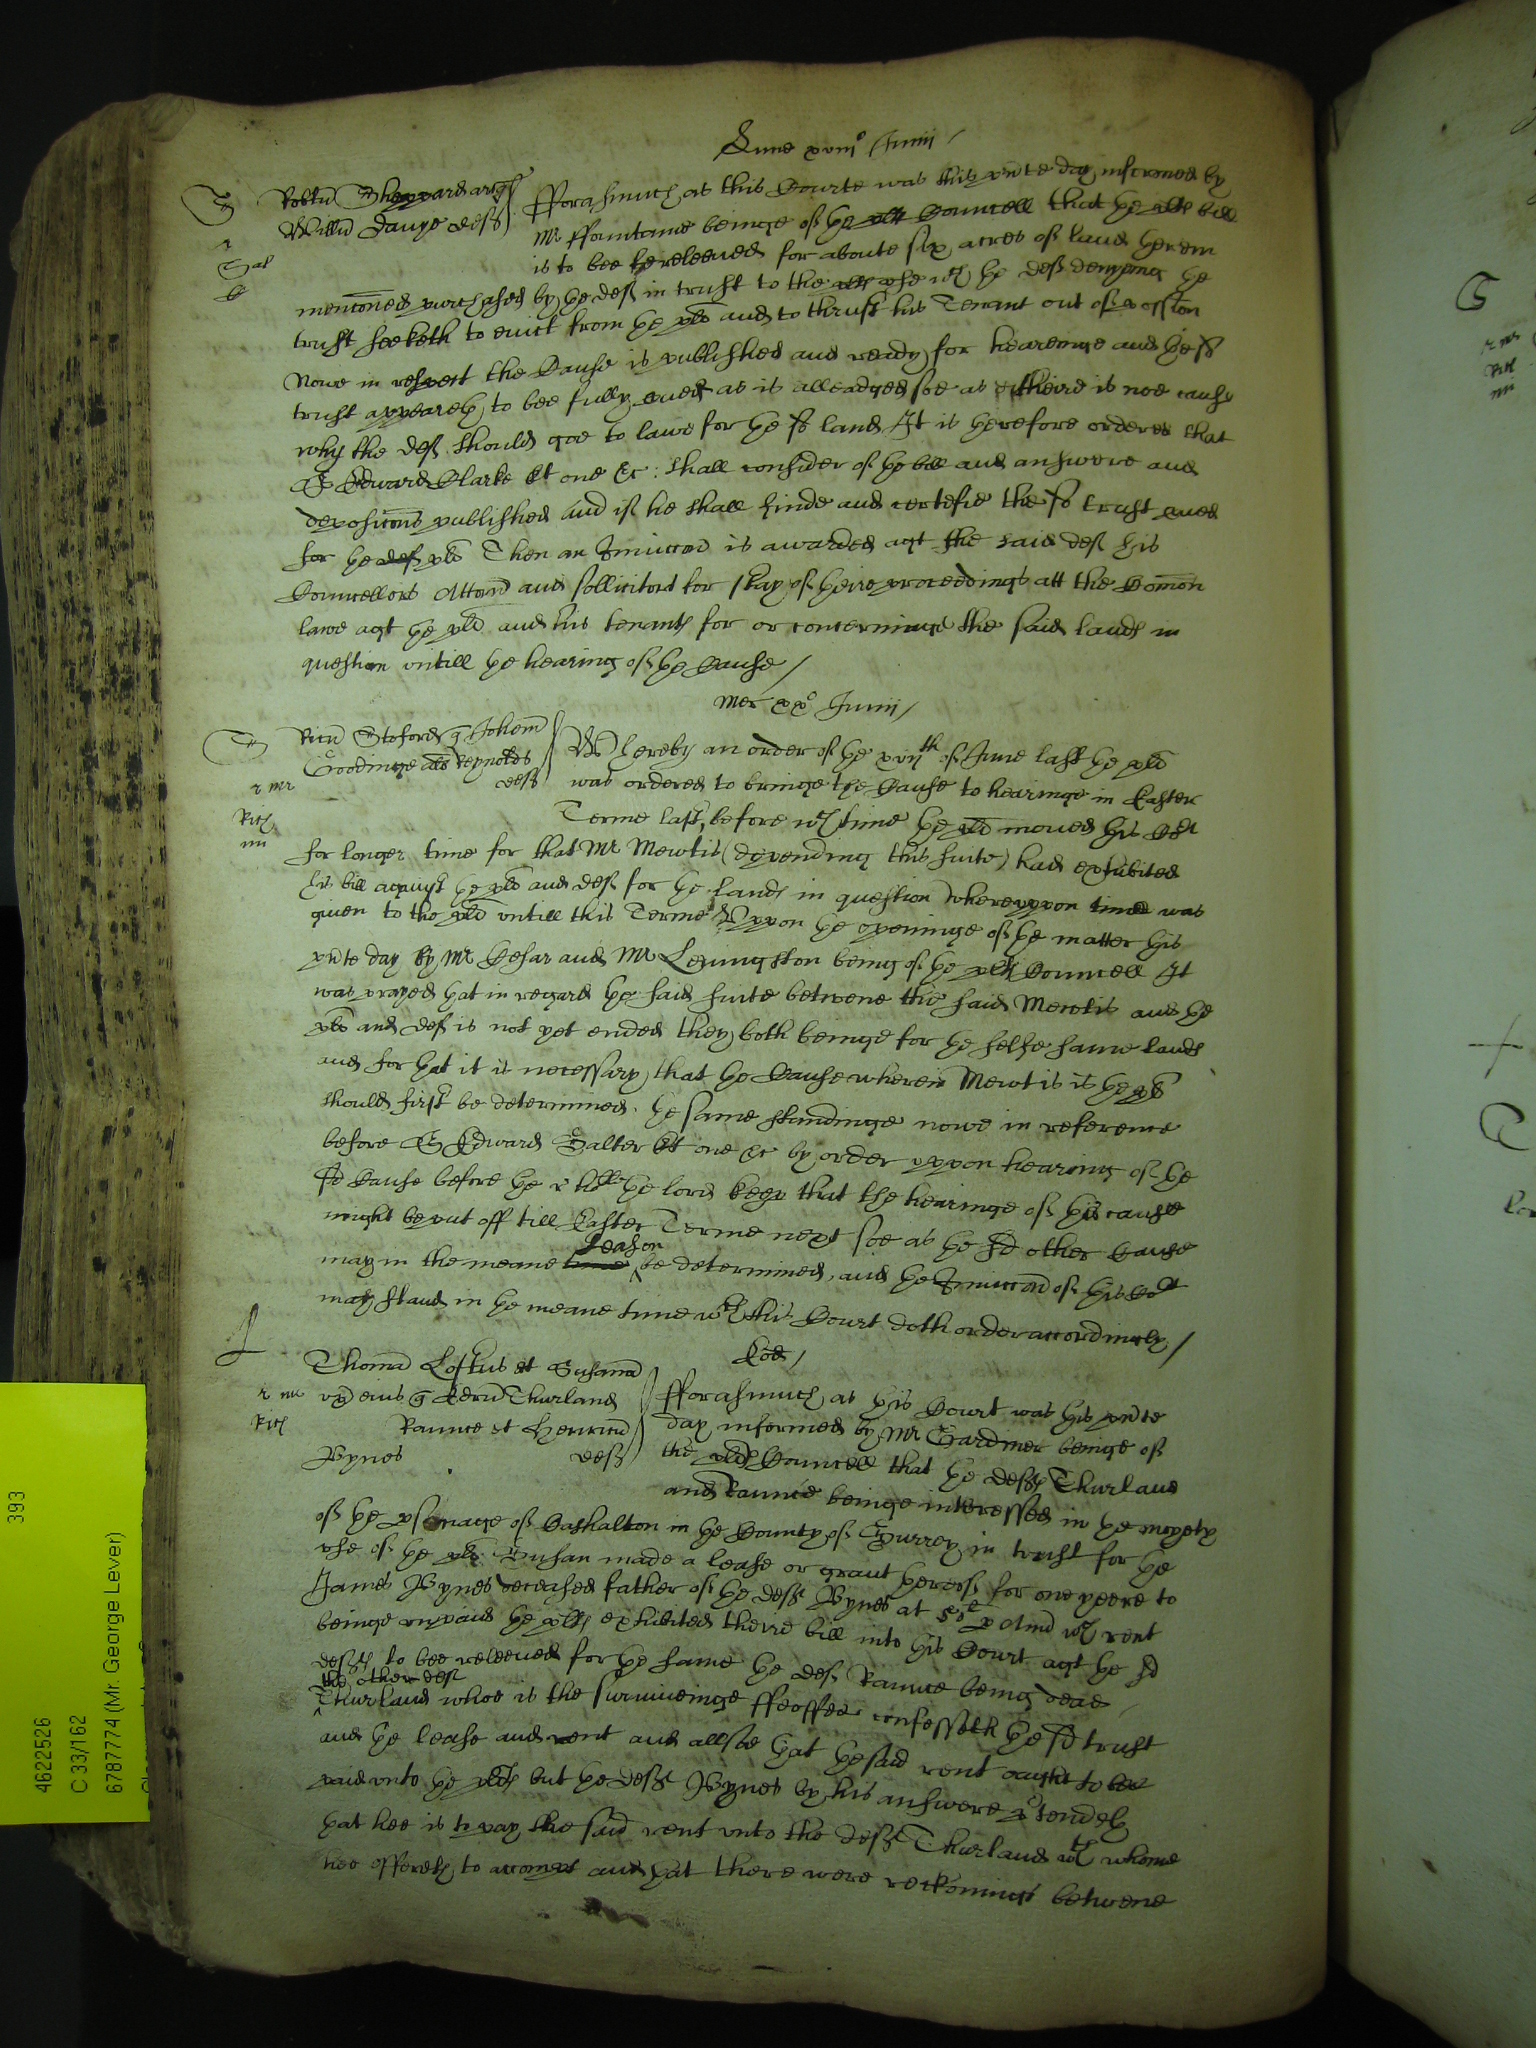 Lune xviii° Junii
Robtus Sheppard ar q
Willm Davye deft
S
r
Sal
Forasmuch as this Courte was this pnte day informed by
Mr Fountaine beinge of the plts Councell that the plts bill
is to bee releeved for aboute six acres of land therein
mencioned purchased by the deft in trust to the plts use wch the deft denyinge the
trust seeketh to evict from the plt and to thrust his Tenant out of possession
Nowe in respect the Cause is published and ready for hearinge and the sd
trust appeareth to bee fully proved as is alleadged soe as theire is noe cause
why the deft should goe to lawe for the sd land It is therefore ordered that
Sr Edward Clarke kt one &c: shall consider of the bill and answere and
deposicons published And if he shall finde and certefie the sd trust proved
for the deft plt Then an Iniunccon is awarded agt the said deft his
Councellors Attorn and sollicitors for stay of theire proceedings att the Comon
lawe agt the plt and his tenants for or concerninge the said lands in
question untill the hearing of the Cause
Mer xx° Junii
Ricus Stoford q Johem
Goodinge als Reynolds
deft
r mr
Rich
iiii
Whereby an order of the xviith of June last the plt
was ordered to bringe the Cause to hearinge in Easter
Terme last, before wch time the plt moved this Cort
for longer time for that Mr Mewtis (dependinge this suite) had exhibited
his bill against the plt and deft for the lands in question whereuppon time was
given to the plt untill this Terme Uppon the openinge of the matter this
pnte day by Mr Cesar and Mr Levingston being of the plts Councell It
was prayed that in regard the said suite betwene the said Mewtis and the
plt and deft is not yet ended they both beinge for the selfe same lands
and for that it is necessary that the Cause wherein Mewtis is the plt
should first be determined. the same standinge nowe in reference
before Sr Edward Salter kt one &c by order uppon hearing of the
sd Cause before the r hoble the lord Keep that the hearinge of this cause
might be put off till Easter Terme next soe as the sd other Cause
season
may in the meane time be determined, and the Iniunccon of this Cort
may stand in the meane time wch this Court doth order accordingly
Eod
Thomas Loftus et Susanna
ux eius q Edrum Thurland
Raunce et Henricum
Bynes deft
r mr
Rich
Forasmuch as this Court was this pnte
day informed by Mr Gardiner beinge of
the plts Councell that the defts Thurland
and Raunce beinge interessed in the moyety
of the psonage of Cashalton in the County of Surrey in trust for the
use of the plt Susan made a lease or graunt thereof for one yeere to
James Bynes deceased father of the deft Bynes at 50l p Annu wch rent
beinge unpaid the plts exhibited theire bill into this Court agt the sd
defts to bee releeved for the same the deft Raunce being dead
the other deft
Thurland whoe is the surviveinge Feoffee confesseth the sd trust
and the lease and rent and allsoe that the said rent ought to bee
paid unto the plts but the deft Bynes by his answere ptendeth
that hee is to pay the said rent unto the deft Thurland wth whome
hee offereth to accompt and that there were reckonings betwene
393
4622526
C 33/162
6787774 (Mr. George Lever)